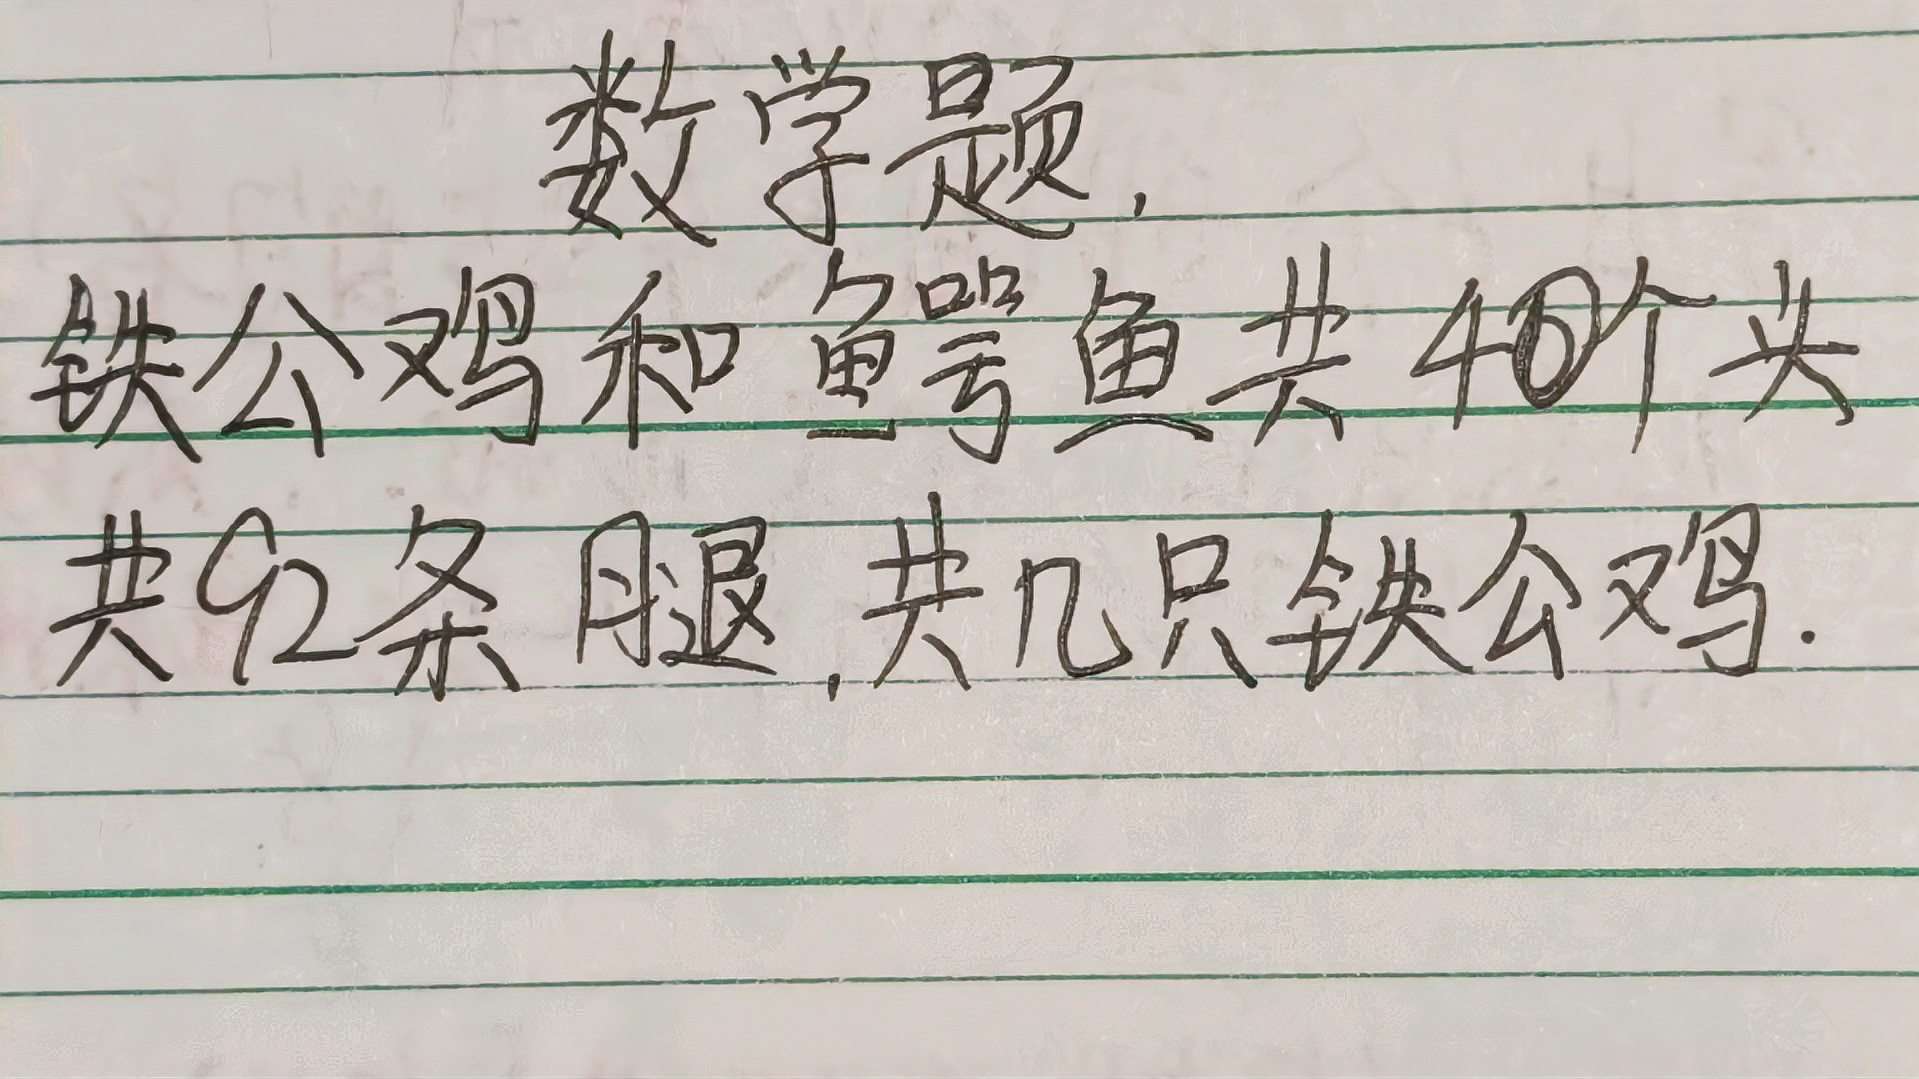 数学题.
铁公鸡和鳄鱼共40个头
共92条腿,共几只铁公鸡.